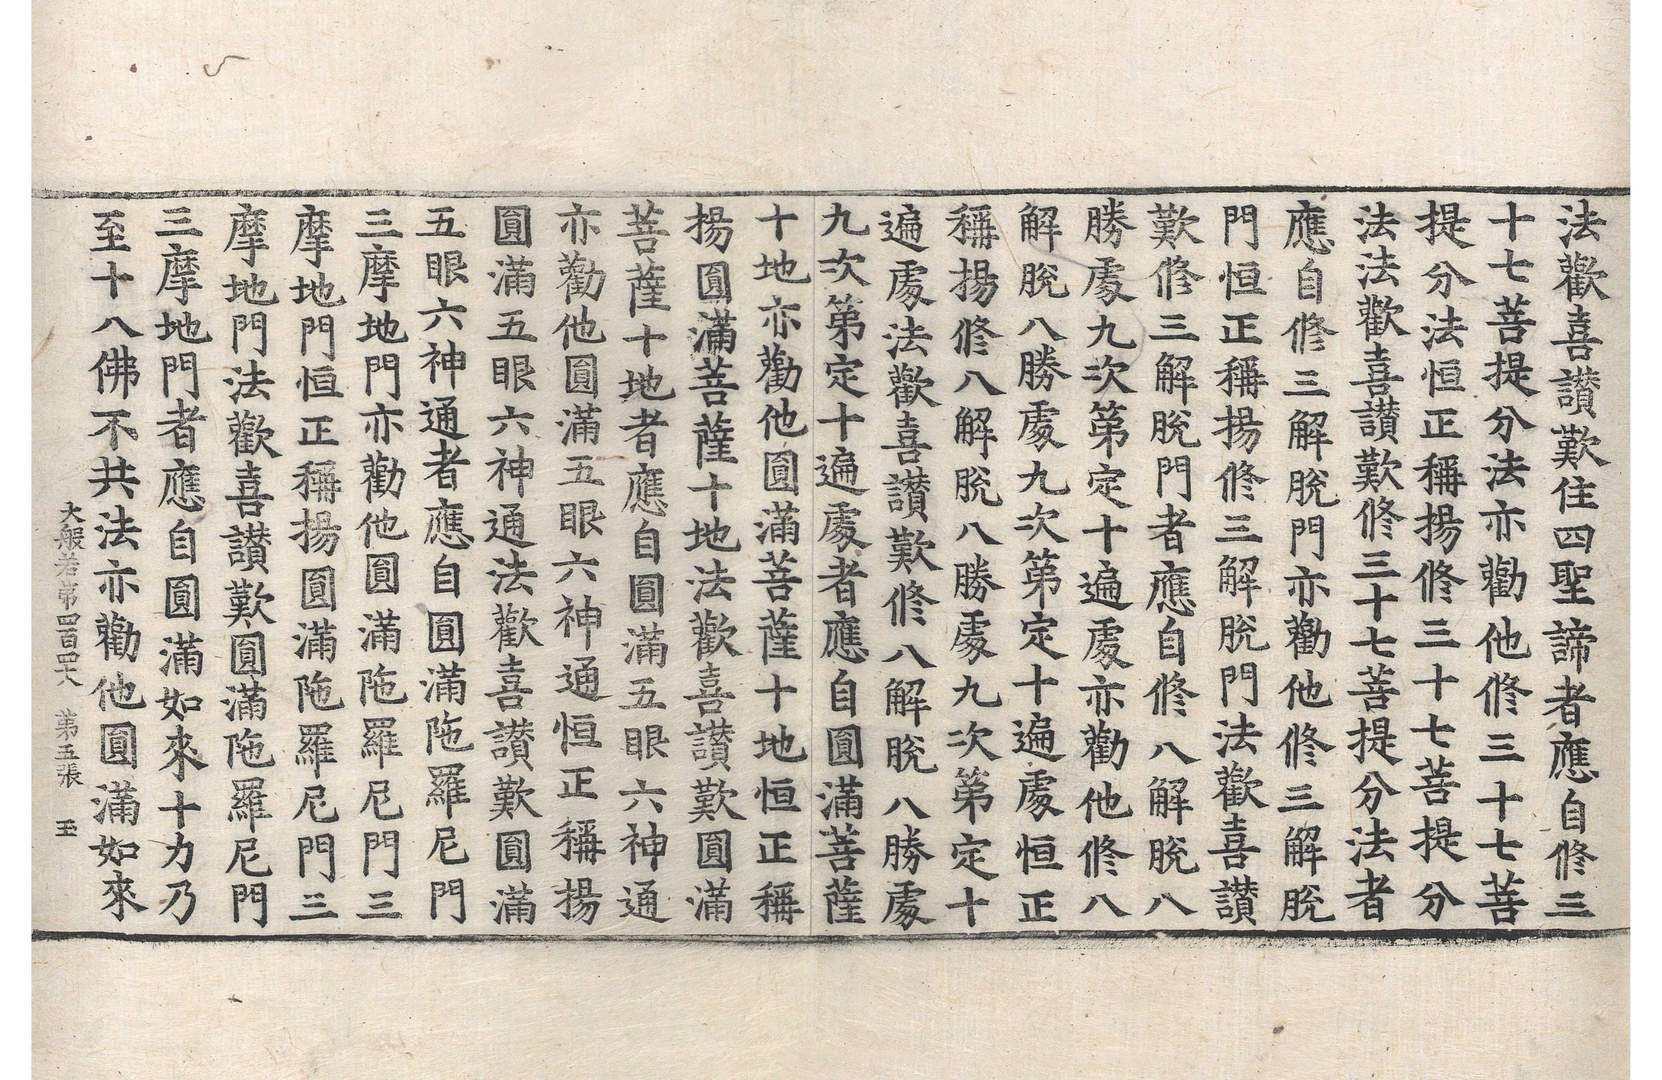 法歡喜讃歎住四聖諦者應自修三
十七菩提分法亦勸他修三十七菩
提分法恒正稱揚修三十七菩提分
法法歡喜讃歎修三十七菩提分法者
應自修三解脫門亦勸他修三解脫
門恒正稱揚修三解脫門法歡喜讃
歎修三解脫門者應自修八解脫八
勝處九次第定十遍處亦勸他修八
解脫八勝處九次第定十遍處恒正
稱揚修八解脫八勝處九次第定十
遍處法歡喜讃歎修八解脫八勝處
九次第定十遍處者應自圓滿菩薩
十地亦勸他圓滿菩薩十地恒正稱
揚圓滿菩薩十地法歡喜讃歎圓滿
菩薩十地者應自圓滿五眼六神通
亦勸他圓滿五眼六神通恒正稱揚
圓滿五眼六神通法歡喜讃歎圓滿
五眼六神通者應自圓滿陁羅尼門
三摩地門亦勸他圓滿陁羅尼門三
摩地門恒正稱揚圓滿陁羅尼門三
摩地門法歡喜讃歎圓滿陁羅尼門
三摩地門者應自圓滿如來十力乃
至十八佛不共法亦勸他圓滿如來
大般若第四百四 第五張 玉